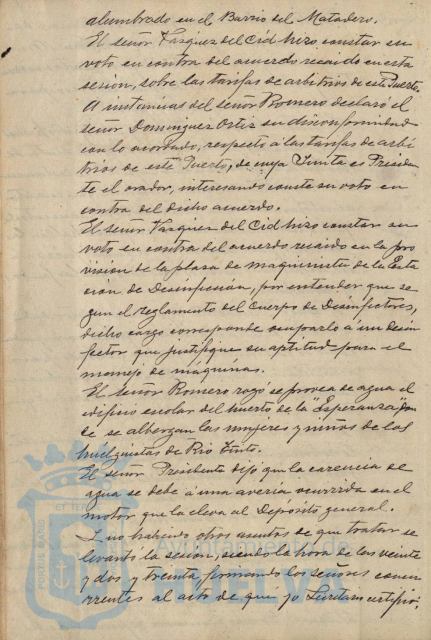 alumbrado en el Barrio del Matadero.
El señor Vazquez del Cid hizo constar su
voto en contra del acuerdo recaido en esta
sesion, sobre las tarifas de arbitrios de este Puerto.
A instancias del señor Romero declaró el
señor Dominguez Ortiz su disconformidad
con lo acordado, respecto á las tarifas de arbi
trios de este Puerto, de cuya Junta es Presiden
te el orador, interesando conste su voto en
contra del dicho acuerdo.
El señor Vazquez del Cid hizo constar su
voto en contra del acuerdo recaido en la pro
vision de la plaza de maquinista de la Esta
cion de Desinfeccion, por entender que se
gun el reglamento del Cuerpo de Desinfectores,
dicho cargo corresponde ocuparlo á un desin
fector que justifique su aptitud para el
manejo de máquinas.
El señor Romero rogó se provea de agua el
edificio escolar del huerto de la "Esperanza" don
de se albergan las mujeres y niños de los
huelguistas de Rio Tinto.
El señor Presidente dijo que la carencia de
agua se debe á una averia ocurrida en el
motor que la eleva al Deposito general.
Y no habiendo otros asuntos de que tratar se
levantó la sesion, siendo la hora de las veinte
y dos y treinta, firmando los señores concu
rrentes al acto de que yo Secretario certifico.
PORTUS MARIS ET TERRÆ
HUELVA